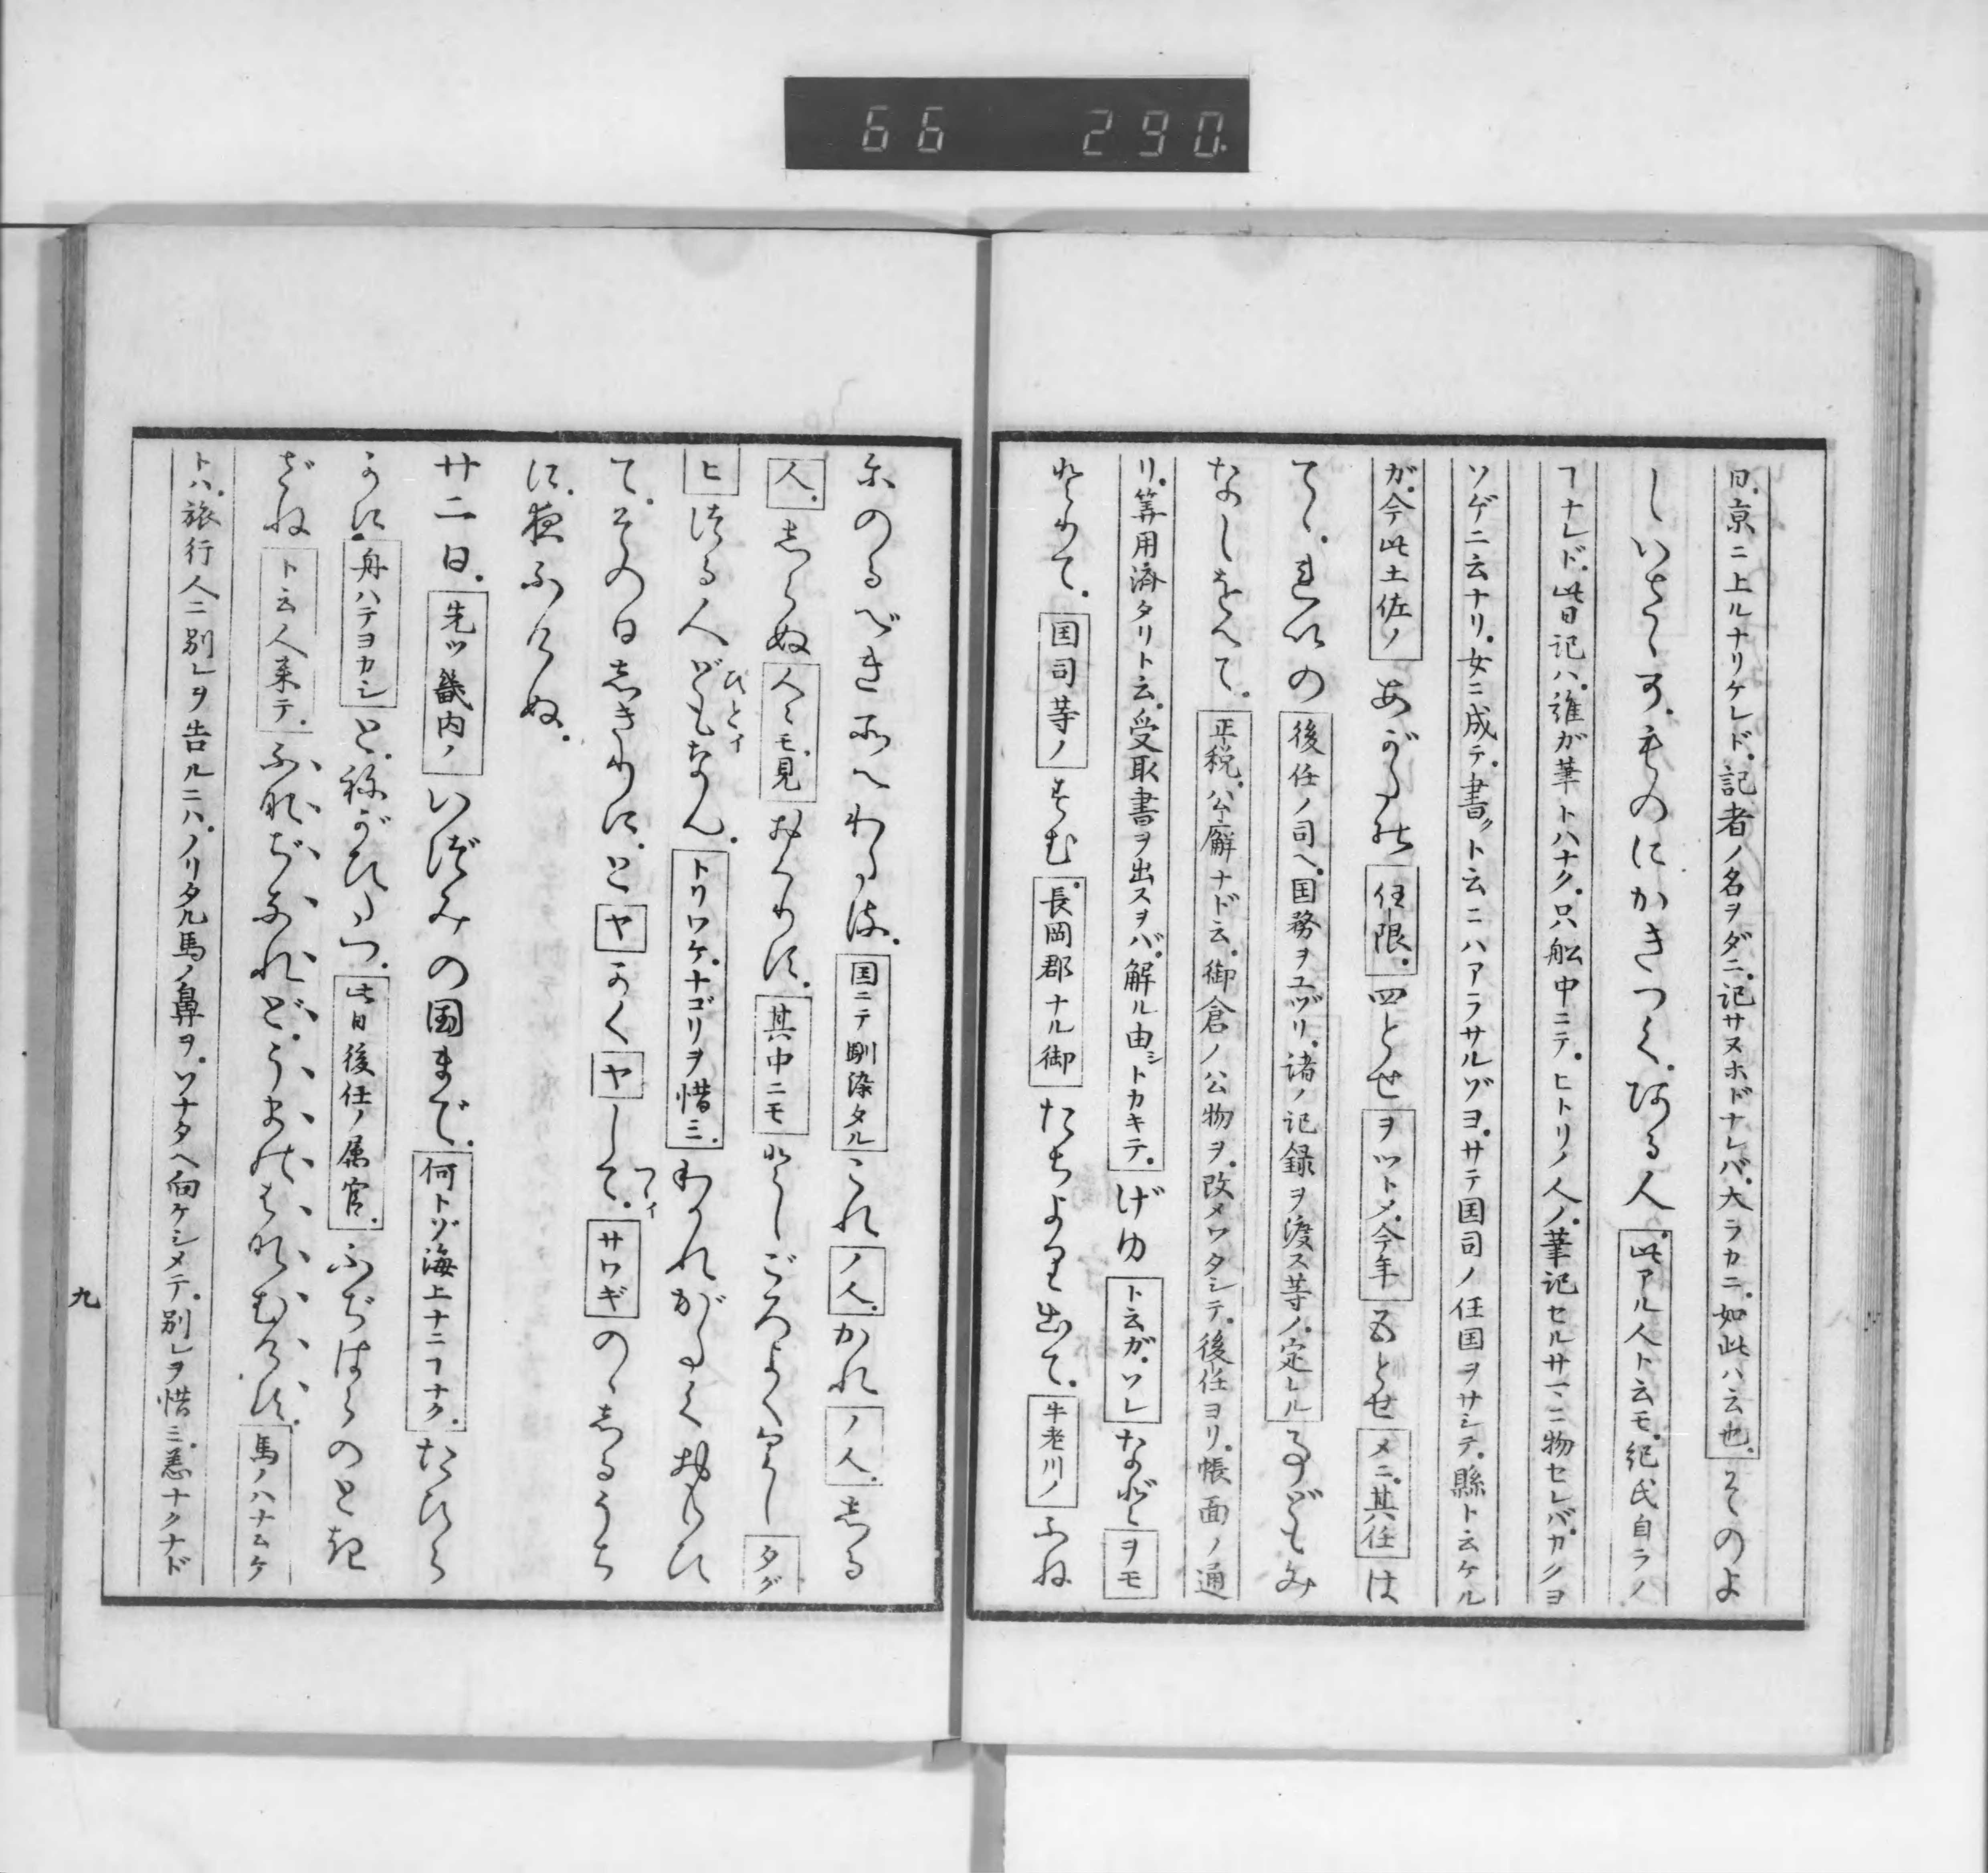 66 290
日。京ニ上ルナリケレド。記者ノ名ヲダニ。記サヌホドナレバ。大ラカニ。如此ハ云也。そのよ
しいさゝか。ものにかきつく。ある人 此アル人ト云モ。紀氏自ラノ
ヿナレド。此日記ハ。誰が筆トハナク。只舩中ニテ。ヒトリノ人ノ。筆記セルサマニ物セレバ。カクヨ
ソゲニ云ナリ。女ニ成テ。書クト云ニハアラサルゾヨ。サテ国司ノ任国ヲサシテ。縣ト云ケル
ガ。今此土佐ノ あがたの 任限。四とせ ヲツトメ。今年 五とせ メニ。其任 は
てゝ。れいの 後任ノ司ヘ。国務ヲユヅリ。諸ノ記録ヲ渡ス等ノ。定レル 事どもみ
なしをへて。正税。公廨ナド云。御倉ノ公物ヲ。改メワタシテ。後任ヨリ。帳面ノ通
リ。算用済タリト云。受取書ヲ出スヲバ。解ル由シトカキテ。げゆ ト云ガ。ソレ など ヲモ
とりて。国司等ノ すむ 長岡郡ナル御 たちより出て。牛老川ノ ふね
にのるべき所へわたる。国ニテ馴染タル これ ノ人。かれ ノ人。しる
人。しらぬ 人々モ。見 おくりす。其中ニモ としごろよくくらし タグ
ヒ つる人どもなん。ひとイ トリワケ。ナゴリヲ惜ミ。わかれがたくおもひ
て。その日しきりに。と ヤ かく ヤ して。つゝイ サワギ のゝしるうち
に。夜ふけぬ。
廿二日。先ツ畿内ノ いづみの国まで。何トゾ海上ナニヿナク。たひら
かに。舟ハテヨカシ と。ねがひたつ。此日後任ノ属官。ふぢはらのとき
ざね ト云人来テ。ふなぢなれど。うまのはなむけす。馬ノハナムケ
トハ。旅行人ニ別レヲ告ルニハ。ノリタル馬ノ鼻ヲ。ソナタヘ向ケシメテ。別レヲ惜ミ。恙ナクナド
九